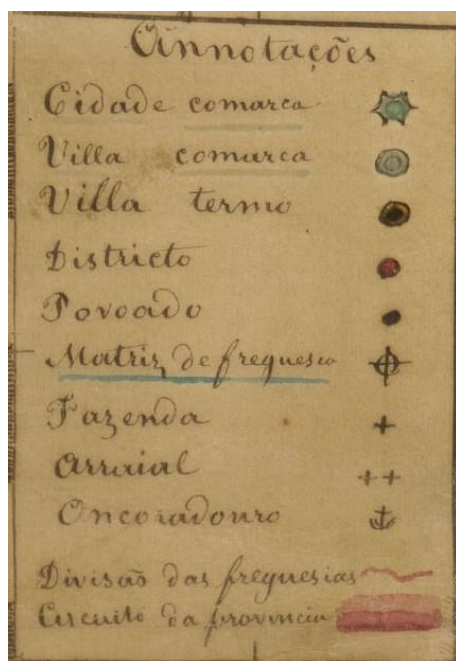 Annotações
Cidade comarca
Villa comarca
Villa termo
Districto
Povoado
Matriz de freguesia
Fazenda
Arraial
Oncoradouro
Divisão das freguesias
Circuito da provincia